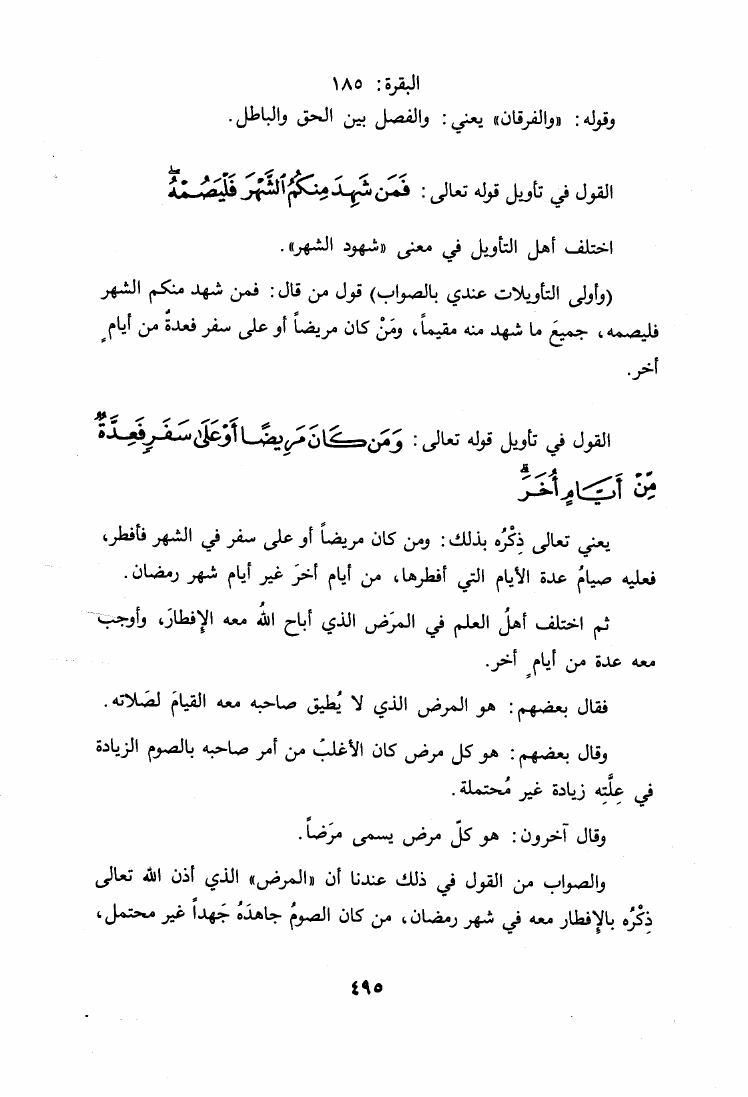 البقرة: ١٨٥
وقوله: «والفرقان» يعني: والفصل بين الحق والباطل.
القول في تأويل قوله تعالى: فَمَن شَهِدَ مِنكُمُ ٱلشَّهْرَ فَلْيَصُمْهُ ۖ
اختلف أهل التأويل في معنى «شهود الشهر».
(وأولى التأويلات عندي بالصواب) قول من قال: فمن شهد منكم الشهر
فليصمه، جميعَ ما شهد منه مقيماً، ومَنْ كان مريضاً أو على سفر فعدةٌ من أيامٍ
أخر.
القول في تأويل قوله تعالى: وَمَن كَانَ مَرِيضًا أَوْ عَلَىٰ سَفَرٍ فَعِدَّةٌ
مِّنْ أَيَّامٍ أُخَرَ ۗ
يعني تعالى ذِكْرُه بذلك: ومن كان مريضاً أو على سفر في الشهر فأفطر،
فعليه صيامُ عدة الأيام التي أفطرها، من أيام أخرَ غير أيام شهر رمضان.
ثم اختلف أهلُ العلم في المرَض الذي أباح اللهُ معه الإفطارَ، وأوجب
معه عدة من أيامٍ أخر.
فقال بعضهم: هو المرض الذي لا يُطيق صاحبه معه القيامَ لصَلاته.
وقال بعضهم: هو كل مرض كان الأغلبُ من أمر صاحبه بالصوم الزيادة
في عِلَّتِه زيادة غير مُحتملة.
وقال آخرون: هو كلّ مرض يسمى مرَضاً.
والصواب من القول في ذلك عندنا أن «المرض» الذي أذن الله تعالى
ذِكْرُه بالإفطار معه في شهر رمضان، من كان الصومُ جاهدَهُ جَهداً غير محتمل،
٤٩٥